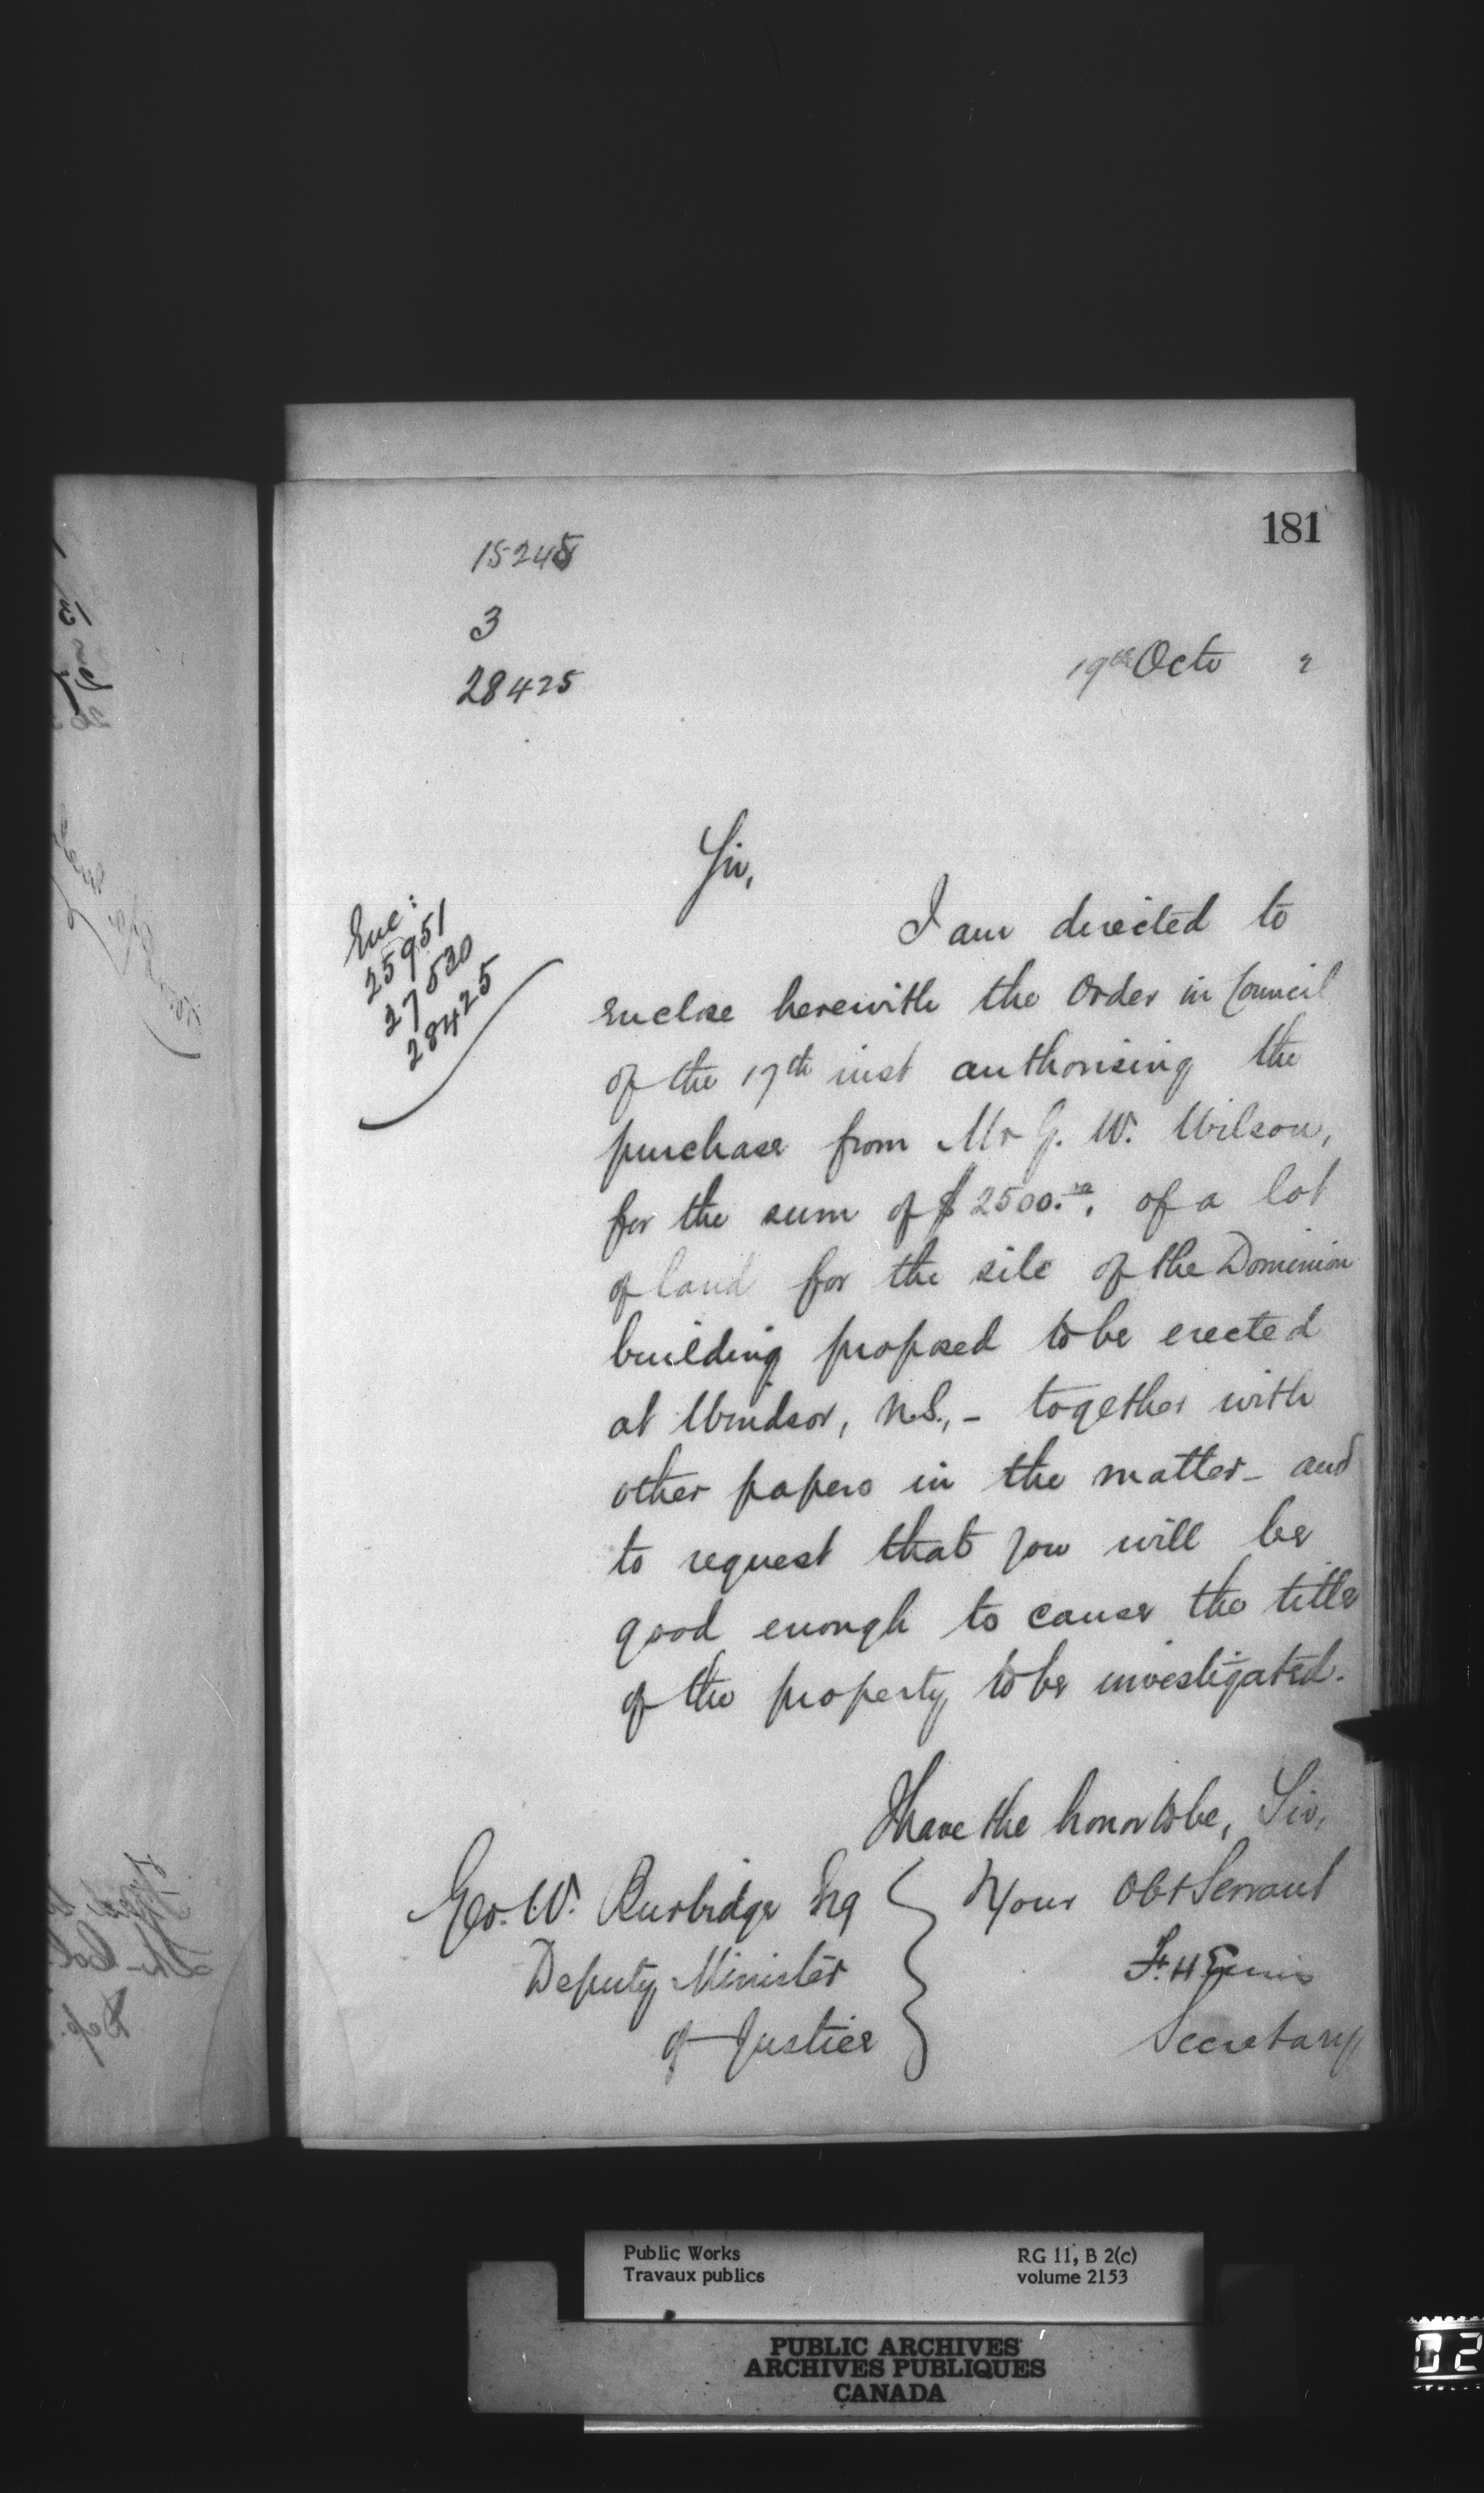 181
15245
3
28425
19th Octo 2
Sir,
Enc:
25951
27530
28425
I am directed to
enclose herewith the Order in Council
of the 17th inst authorising the
purchase from Mr G. W. Wilson,
for the sum of $2500.00, of a lot
of land for the site of the Dominion
building proposed to be erected
at Windsor, N.S., - together with
other papers in the matter - and
to request that you will be
good enough to cause the title
of the property to be investigated.
I have the honor to be, Sir,
Your Obt Servant
F. H. Ennis
Secretary
Geo. W. Burbidge Esq
Deputy Minister
of Justice
Public Works
Travaux publics
RG 11, B 2(c)
volume 2153
PUBLIC ARCHIVES
ARCHIVES PUBLIQUES
CANADA